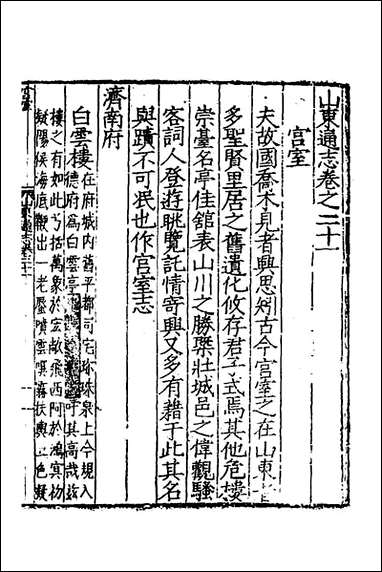 山東通志卷之二十一
宮室
夫故國喬木見者興思矧古今宮室之在山東者
多聖賢里居之舊遺化攸存君子式焉其他危樓
崇臺名亭佳館表山川之勝槩壯城邑之偉觀騷
客詞人登遊眺覽託情寄興又多有藉于此其名
與蹟不可泯也作宮室志
濟南府
白雲樓
在府城內舊平都司宅珍珠泉上今規入
德府為白雲亭
呼其高哉茲
樓之有如此乃括萬象於宏敞飛西阿於鴻冥物
擬陽侯海底
出老蜃噴雲暝霧扶輿一色凝